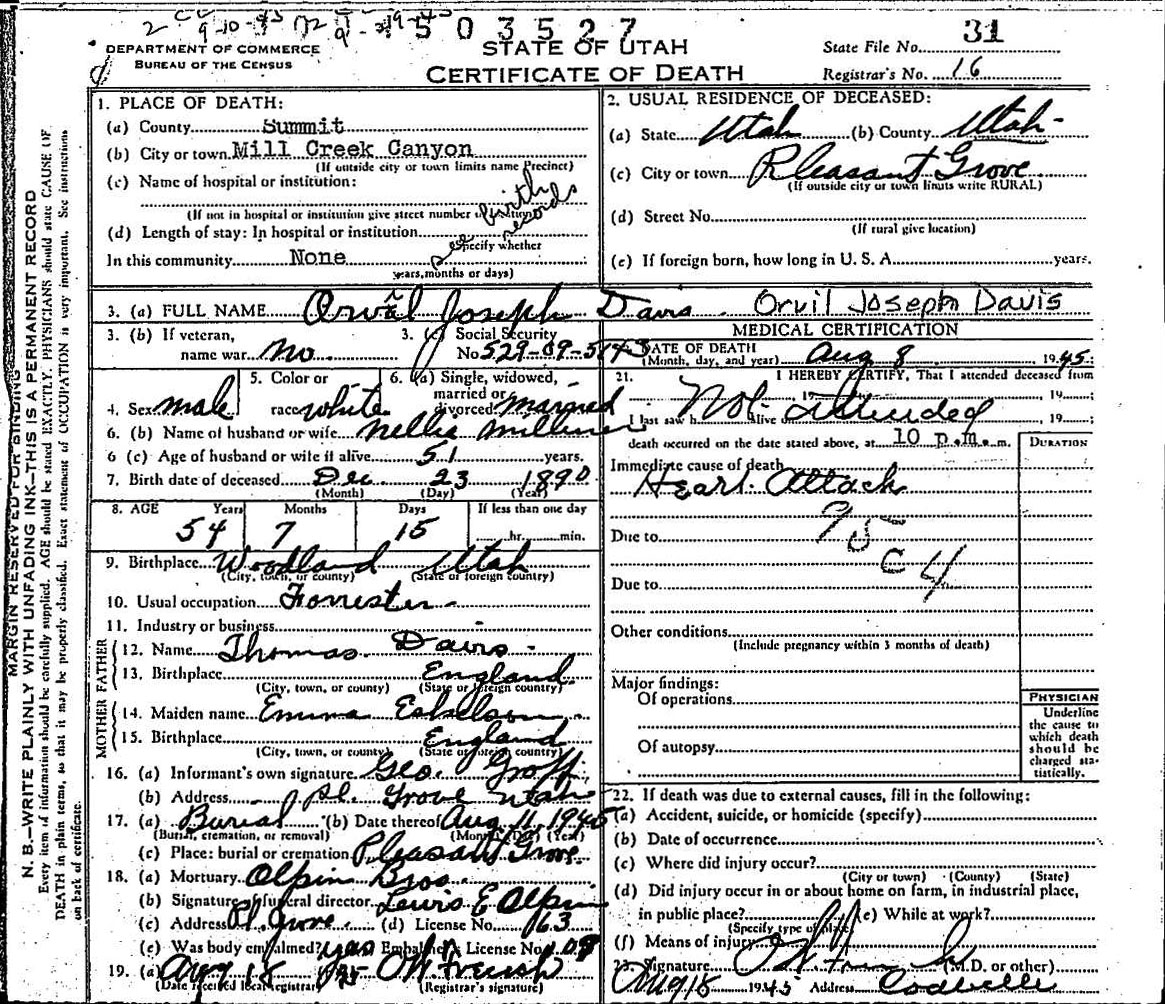 503527
DEPARTMENT OF COMMERCE
BUREAU OF THE CENSUS
STATE OF UTAH
CERTIFICATE OF DEATH
State File No. 31
Registrar's No. 16
MARGIN RESERVED FOR BINDING
N. B.—WRITE PLAINLY WITH UNFADING INK—THIS IS A PERMANENT RECORD
Every item of information should be carefully supplied. AGE should be stated EXACTLY. PHYSICIANS should state CAUSE OF
DEATH in plain terms, so that it may be properly classified. Exact statement of OCCUPATION is very important. See instructions
on back of certificate.
1. PLACE OF DEATH:
(a) County Summit
(b) City or town Mill Creek Canyon
(If outside city or town limits name Precinct)
(c) Name of hospital or institution:
(If not in hospital or institution give street number or location)
see birth records
(d) Length of stay: In hospital or institution
(Specify whether
In this community None
years, months or days)
2. USUAL RESIDENCE OF DECEASED:
(a) State Utah (b) County Utah
(c) City or town Pleasant Grove
(If outside city or town limits write RURAL)
(d) Street No.
(If rural give location)
(e) If foreign born, how long in U. S. A. years.
3. (a) FULL NAME Orvil Joseph Davis Orvil Joseph Davis
3. (b) If veteran, name war No
3. (c) Social Security No. 529-09-5143
4. Sex male
5. Color or race white
6. (a) Single, widowed, married or divorced married
6. (b) Name of husband or wife Nellie Milliner
6 (c) Age of husband or wife if alive 51 years.
7. Birth date of deceased Dec 23 1890
(Month) (Day) (Year)
8. AGE Years Months Days If less than one day
54 7 15 hr. min.
9. Birthplace Woodland Utah
(City, town, or county) (State or foreign country)
10. Usual occupation Forrester
11. Industry or business
FATHER
12. Name Thomas Davis
13. Birthplace England
(City, town, or county) (State or foreign country)
MOTHER
14. Maiden name Emma Eskelson
15. Birthplace England
(City, town, or county) (State or foreign country)
16. (a) Informant's own signature Geo. Groff
(b) Address Pl. Grove Utah
17. (a) Burial (b) Date thereof Aug 11, 1945
(Burial, cremation, or removal) (Month) (Day) (Year)
(c) Place: burial or cremation Pleasant Grove
18. (a) Mortuary Olpin Bros.
(b) Signature of funeral director Lewis E Olpin
(c) Address Pl. Grove (d) License No. 163
(e) Was body embalmed? yes Embalmer's License No.
19. (a) Aug 18
(Date received local Registrar) (Registrar's signature)
MEDICAL CERTIFICATION
DATE OF DEATH
(Month, day, and year) Aug 8 1945
21. I HEREBY CERTIFY, That I attended deceased from
19 to 19
Not Attended
I last saw h alive on 19
death occurred on the date stated above, at 10 p.m. m.
DURATION
Immediate cause of death
Heart Attack
95 c 4
Due to
Due to
Other conditions
(Include pregnancy within 3 months of death)
Major findings:
Of operations
Of autopsy
PHYSICIAN
Underline
the cause to
which death
should be
charged sta-
tistically.
22. If death was due to external causes, fill in the following:
(a) Accident, suicide, or homicide (specify)
(b) Date of occurrence
(c) Where did injury occur?
(City or town) (County) (State)
(d) Did injury occur in or about home on farm, in industrial place,
in public place? (e) While at work?
(Specify type of place)
(f) Means of injury
23. Signature (M.D. or other)
Aug 18 1945 Address Coalville